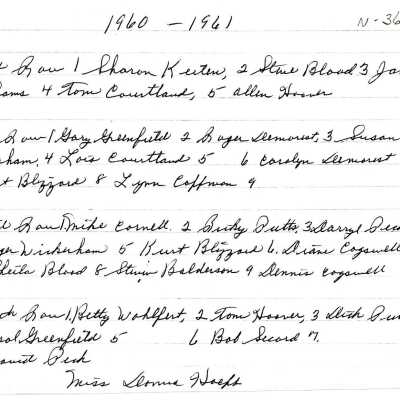 1960 - 1961 N-36
Row 1 Sharon Keeten, 2 Steve Blood 3 Ja
ams 4 Tom Courtland, 5 Allen Hoover
Row 1 Gary Greenfield 2 Roger Demorest, 3 Susan
ham, 4 Lois Courtland 5 6 Carolyn Demorest
t Blizzard 8 Lynn Coffman 9
Row 1 Mike Cornell 2 Becky Butts, 3 Darryl Peck
ger Wickerham 5 Kurt Blizzard 6. Diane Cogswell
heila Blood 8 Steven Balderson 9 Dennis Cogswell
ck Row 1, Betty Wohlfert, 2 Tom Hoover, 3 Dick
rol Greenfield 5 6 Bob Secord 7.
Peck
Miss Donna